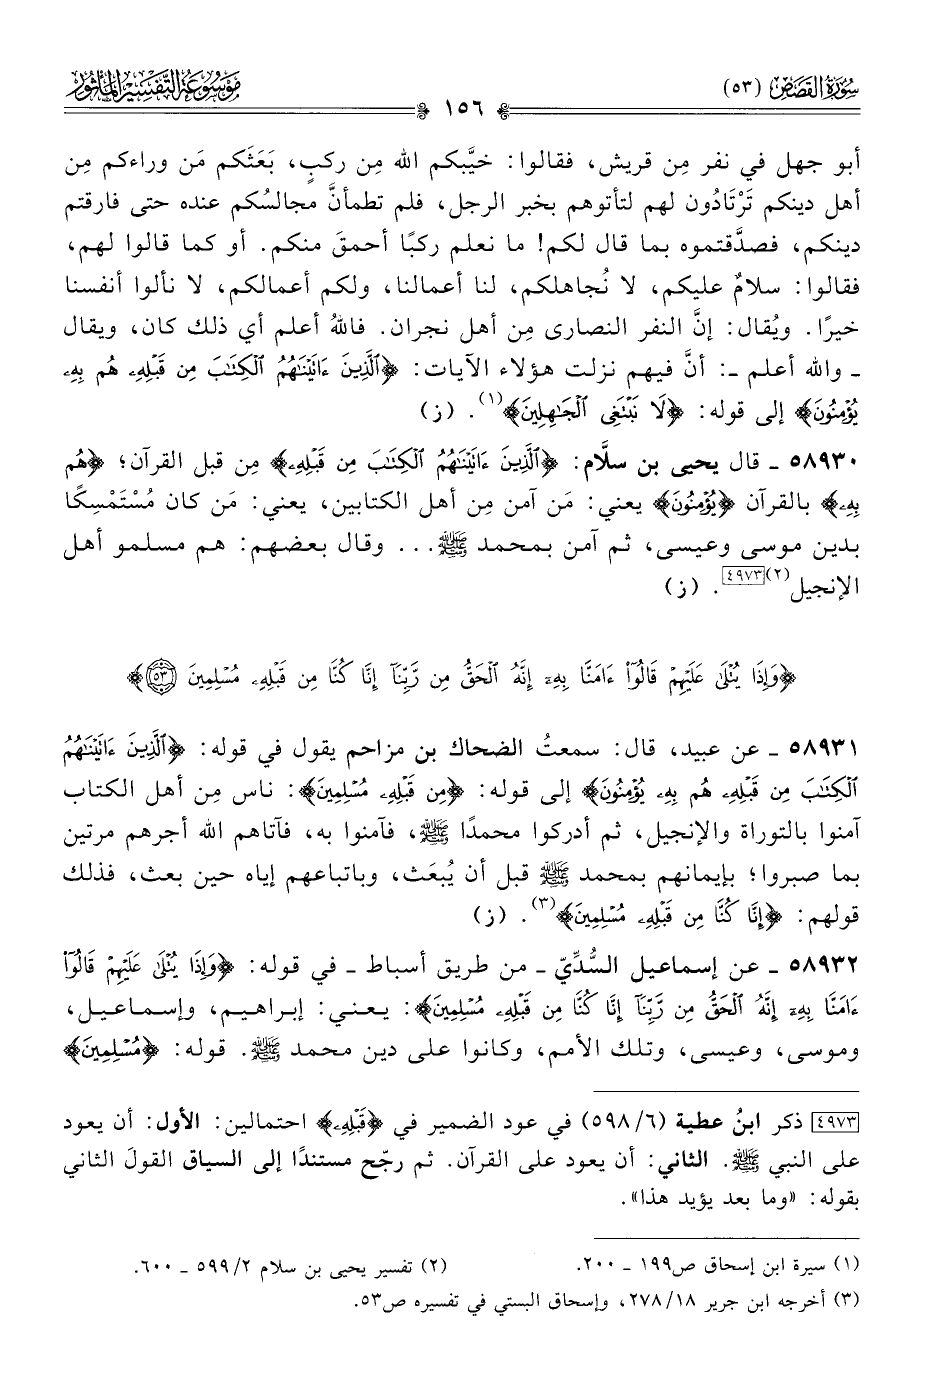 سُورَةُ القَصَصِ (٥٣)
١٥٦
مَوْسُوعَةُ التَّفْسِيرِ المَأْثُورِ
أبو جهل في نفر مِن قريش، فقالوا: خيَّبكم الله مِن ركبٍ، بَعَثَكم مَن وراءكم مِن
أهل دينكم تَرْتَادُون لهم لتأتوهم بخبر الرجل، فلم تطمأنَّ مجالسُكم عنده حتى فارقتم
دينكم، فصدَّقتموه بما قال لكم! ما نعلم ركبًا أحمقَ منكم. أو كما قالوا لهم،
فقالوا: سلامٌ عليكم، لا نُجاهلكم، لنا أعمالنا، ولكم أعمالكم، لا نألوا أنفسنا
خيرًا. ويُقال: إنَّ النفر النصارى مِن أهل نجران. فاللهُ أعلم أي ذلك كان، ويقال
ـ والله أعلم ـ: أنَّ فيهم نزلت هؤلاء الآيات: ﴿ٱلَّذِينَ ءَاتَيْنَٰهُمُ ٱلْكِتَٰبَ مِن قَبْلِهِۦ هُم بِهِۦ
يُؤْمِنُونَ﴾ إلى قوله: ﴿لَا نَبْتَغِى ٱلْجَٰهِلِينَ﴾(١). (ز)
٥٨٩٣٠ ـ قال يحيى بن سلَّام: ﴿ٱلَّذِينَ ءَاتَيْنَٰهُمُ ٱلْكِتَٰبَ مِن قَبْلِهِۦ﴾ مِن قبل القرآن؛ ﴿هُم
بِهِۦ﴾ بالقرآن ﴿يُؤْمِنُونَ﴾ يعني: مَن آمن مِن أهل الكتابين، يعني: مَن كان مُسْتَمْسِكًا
بدين موسى وعيسى، ثم آمن بمحمد ﷺ... وقال بعضهم: هم مسلمو أهل
الإنجيل(٢)[٤٩٧٣]. (ز)
﴿وَإِذَا يُتْلَىٰ عَلَيْهِمْ قَالُوٓا۟ ءَامَنَّا بِهِۦٓ إِنَّهُ ٱلْحَقُّ مِن رَّبِّنَآ إِنَّا كُنَّا مِن قَبْلِهِۦ مُسْلِمِينَ ۝٥٣﴾
٥٨٩٣١ ـ عن عبيد، قال: سمعتُ الضحاك بن مزاحم يقول في قوله: ﴿ٱلَّذِينَ ءَاتَيْنَٰهُمُ
ٱلْكِتَٰبَ مِن قَبْلِهِۦ هُم بِهِۦ يُؤْمِنُونَ﴾ إلى قوله: ﴿مِن قَبْلِهِۦ مُسْلِمِينَ﴾: ناس مِن أهل الكتاب
آمنوا بالتوراة والإنجيل، ثم أدركوا محمدًا ﷺ، فآمنوا به، فآتاهم الله أجرهم مرتين
بما صبروا؛ بإيمانهم بمحمد ﷺ قبل أن يُبعَث، وباتباعهم إياه حين بعث، فذلك
قولهم: ﴿إِنَّا كُنَّا مِن قَبْلِهِۦ مُسْلِمِينَ﴾(٣). (ز)
٥٨٩٣٢ ـ عن إسماعيل السُّدِّيّ ـ من طريق أسباط ـ في قوله: ﴿وَإِذَا يُتْلَىٰ عَلَيْهِمْ قَالُوٓا۟
ءَامَنَّا بِهِۦٓ إِنَّهُ ٱلْحَقُّ مِن رَّبِّنَآ إِنَّا كُنَّا مِن قَبْلِهِۦ مُسْلِمِينَ﴾: يعني: إبراهيم، وإسماعيل،
وموسى، وعيسى، وتلك الأمم، وكانوا على دين محمد ﷺ. قوله: ﴿مُسْلِمِينَ﴾
[٤٩٧٣] ذكر ابنُ عطية (٥٩٨/٦) في عود الضمير في ﴿قَبْلِهِۦ﴾ احتمالين: الأول: أن يعود
على النبي ﷺ. الثاني: أن يعود على القرآن. ثم رجّح مستندًا إلى السياق القولَ الثاني
بقوله: «وما بعد يؤيد هذا».
(١) سيرة ابن إسحاق ص١٩٩ ـ ٢٠٠.
(٢) تفسير يحيى بن سلام ٥٩٩/٢ ـ ٦٠٠.
(٣) أخرجه ابن جرير ٢٧٨/١٨، وإسحاق البستي في تفسيره ص٥٣.